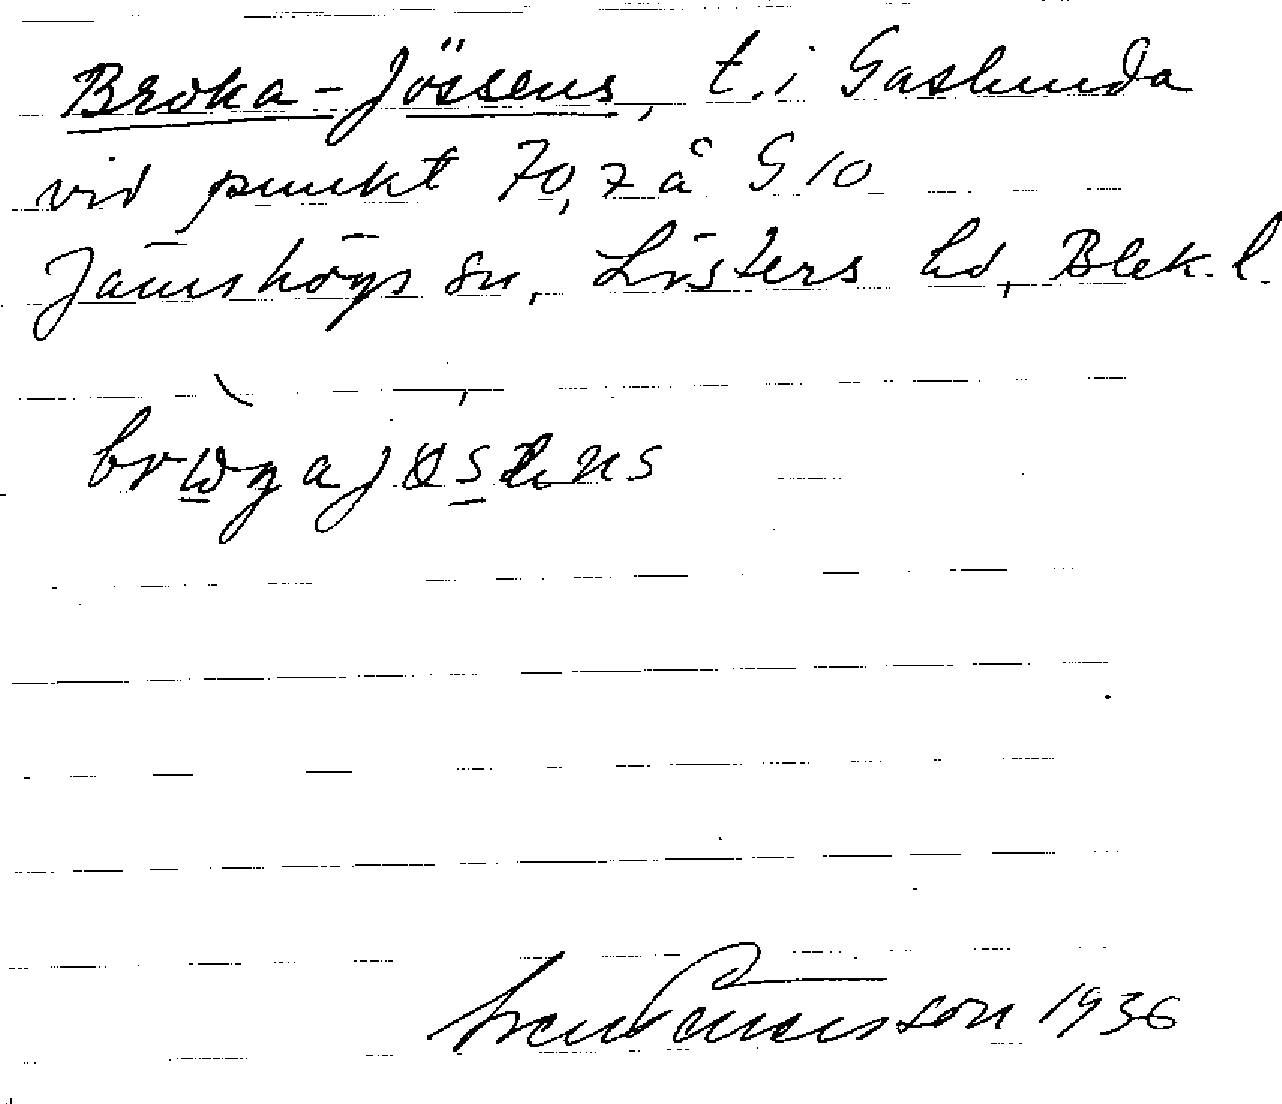 Broka-Jössens, t. i Gaslunda
vid punkt 70,7 å G 10
Jämshögs sn, Listers hd, Blek. l.
brωgajøsens
son 1936